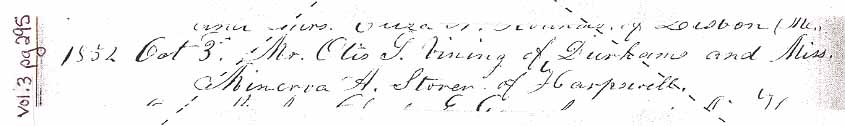 vol. 3 pg 295
and Mrs. Eliza of Lisbon (Me.
1852 Oct 3. Mr. Otis S. Vining of Durham and Miss.
Minerva A. Storer of Harpswell.